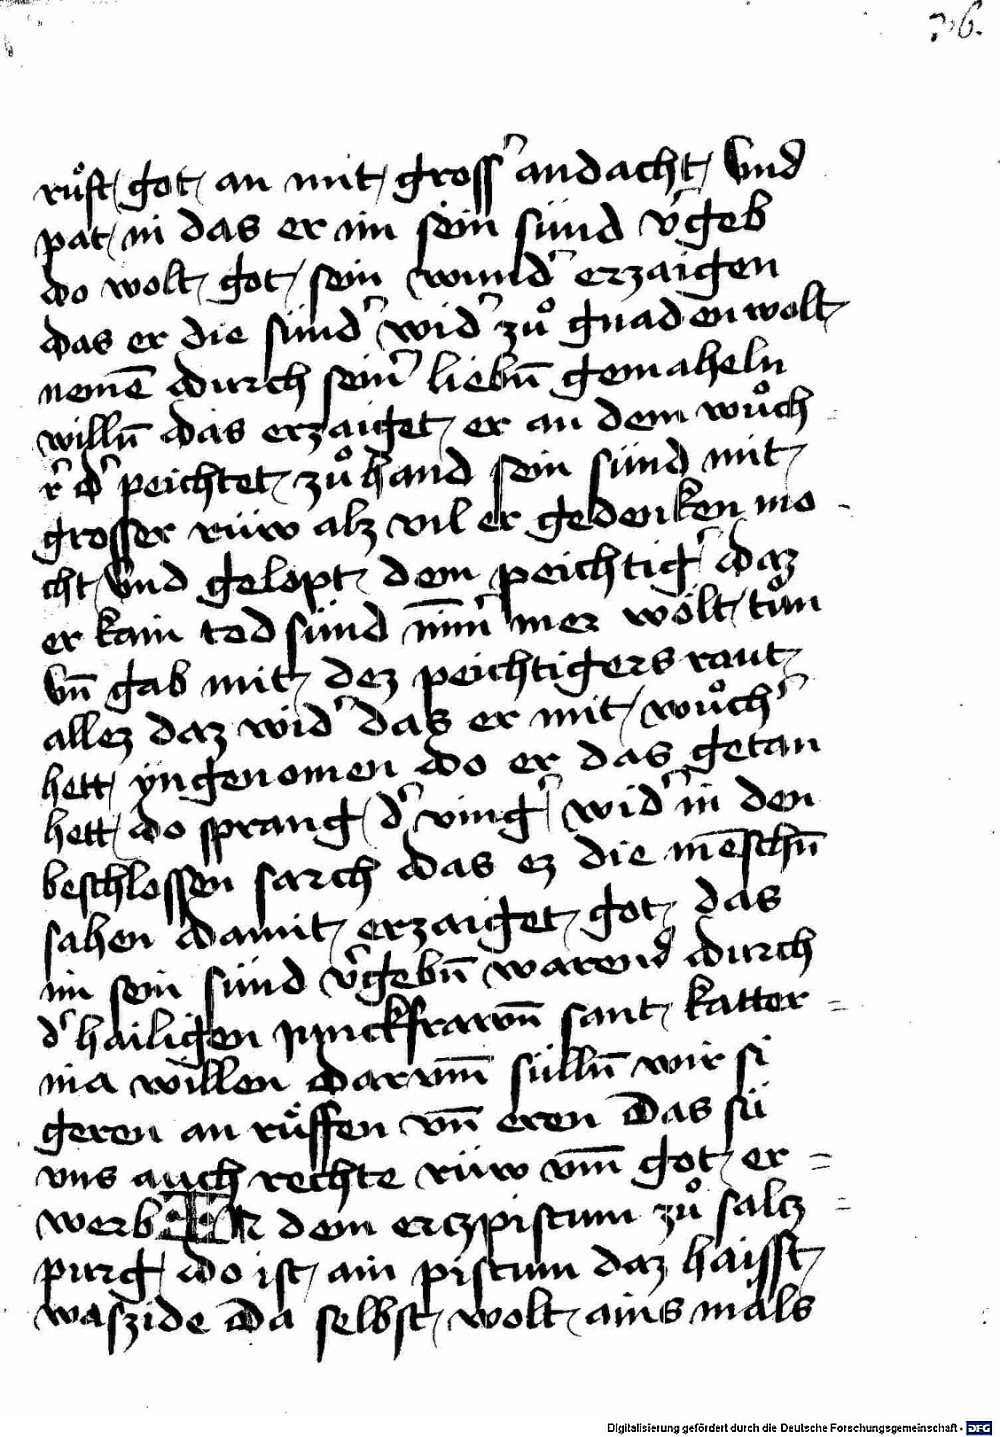 76.
růft got an mit gross' andacht Vnd
pat in das er im sein sünd v'geb
do wolt got sein wund' erzaigen
das er die sünd' wid' zů gnaden wolt
nemē durch sein' liebn̄ gemaheln
willn̄ das erzaiget er an dem wůch
r' d' peichtet zů hand sein sünd mit
grosser rüw alz vil er gedenken mo
cht Vnd gelopt dem peichtig' daz
er kain tod sünd nim̄' mer wölt tůn
Vn̄ gab mit dez peichtigers raut
allez daz wid' das er mit wůch'
hett yngenomen do er das getan
hett do sprang d' ving' wid' in den
beschlossen sarch das ez die mēschn̄
sahen damit erzaiget got das
im sein sünd v'gebn̄ warend durch
d' hailigen junckfrawn̄ sant katter
ina willen darvm̄ sülln̄ wir si
geren an rüffen vn̄ eren Das sü
vns auch rechte rüw vm̄ got er
werb IN dem erczpistum zů salcz
purg do ist ain pistum daz haisst
waszide Da selbst wolt ains mals
Digitalisierung gefördert durch die Deutsche Forschungsgemeinschaft - DFG